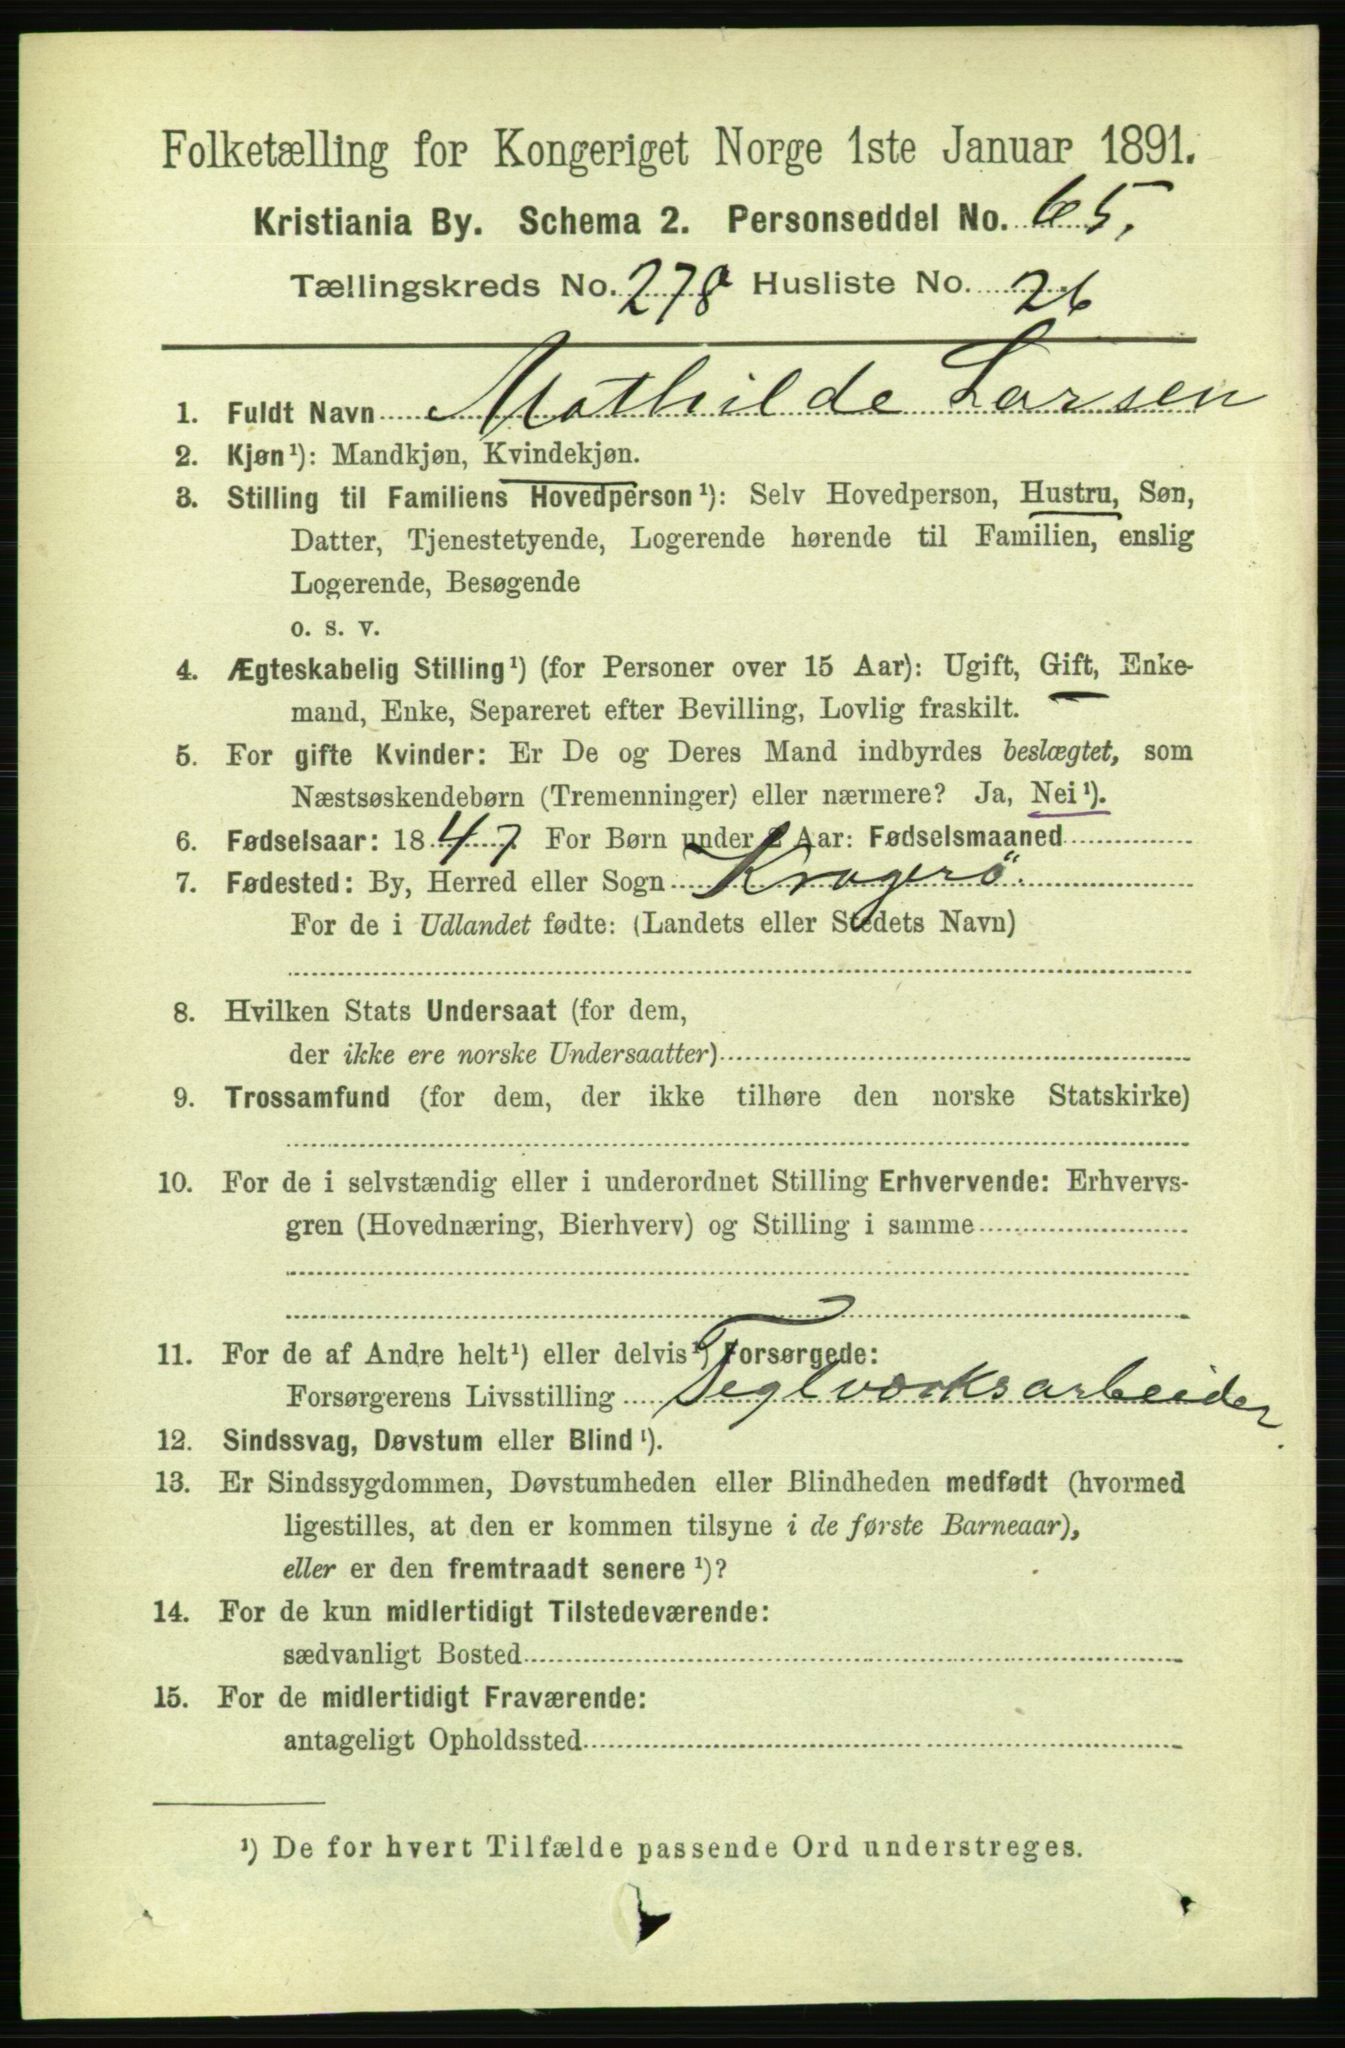 Folketælling for Kongeriget Norge 1ste Januar 1891.
Kristiania By. Schema 2. Personseddel No. 65,
Tællingskreds No. 278 Husliste No. 26
1. Fuldt Navn Mathilde Larsen
2. Kjøn¹): Mandkjøn, Kvindekjøn.
3. Stilling til Familiens Hovedperson¹): Selv Hovedperson, Hustru, Søn,
Datter, Tjenestetyende, Logerende hørende til Familien, enslig
Logerende, Besøgende
o. s. v.
4. Ægteskabelig Stilling¹) (for Personer over 15 Aar): Ugift, Gift, Enke-
mand, Enke, Separeret efter Bevilling, Lovlig fraskilt.
5. For gifte Kvinder: Er De og Deres Mand indbyrdes beslægtet, som
Næstsøskendebørn (Tremenninger) eller nærmere? Ja, Nei¹).
6. Fødselsaar: 1847. For Børn under 2 Aar: Fødselsmaaned
7. Fødested: By, Herred eller Sogn Kragerö.
For de i Udlandet fødte: (Landets eller Stedets Navn)
8. Hvilken Stats Undersaat (for dem,
der ikke ere norske Undersaatter)
9. Trossamfund (for dem, der ikke tilhøre den norske Statskirke)
10. For de i selvstændig eller i underordnet Stilling Erhvervende: Erhvervs-
gren (Hovednæring, Bierhverv) og Stilling i samme
11. For de af Andre helt¹) eller delvis¹) Forsørgede:
Forsørgerens Livsstilling Teglværksarbeider.
12. Sindssvag, Døvstum eller Blind¹).
13. Er Sindssygdommen, Døvstumheden eller Blindheden medfødt (hvormed
ligestilles, at den er kommen tilsyne i de første Barneaar),
eller er den fremtraadt senere¹)?
14. For de kun midlertidigt Tilstedeværende:
sædvanligt Bosted
15. For de midlertidigt Fraværende:
antageligt Opholdssted
¹) De for hvert Tilfælde passende Ord understreges.